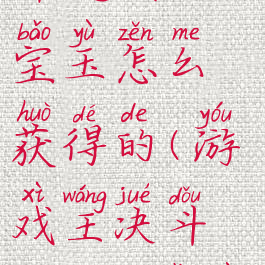 bǎo yù zěn me
宝玉怎么
huò dé de yóu
获得的(游
xì wáng jué dǒu
戏王决斗